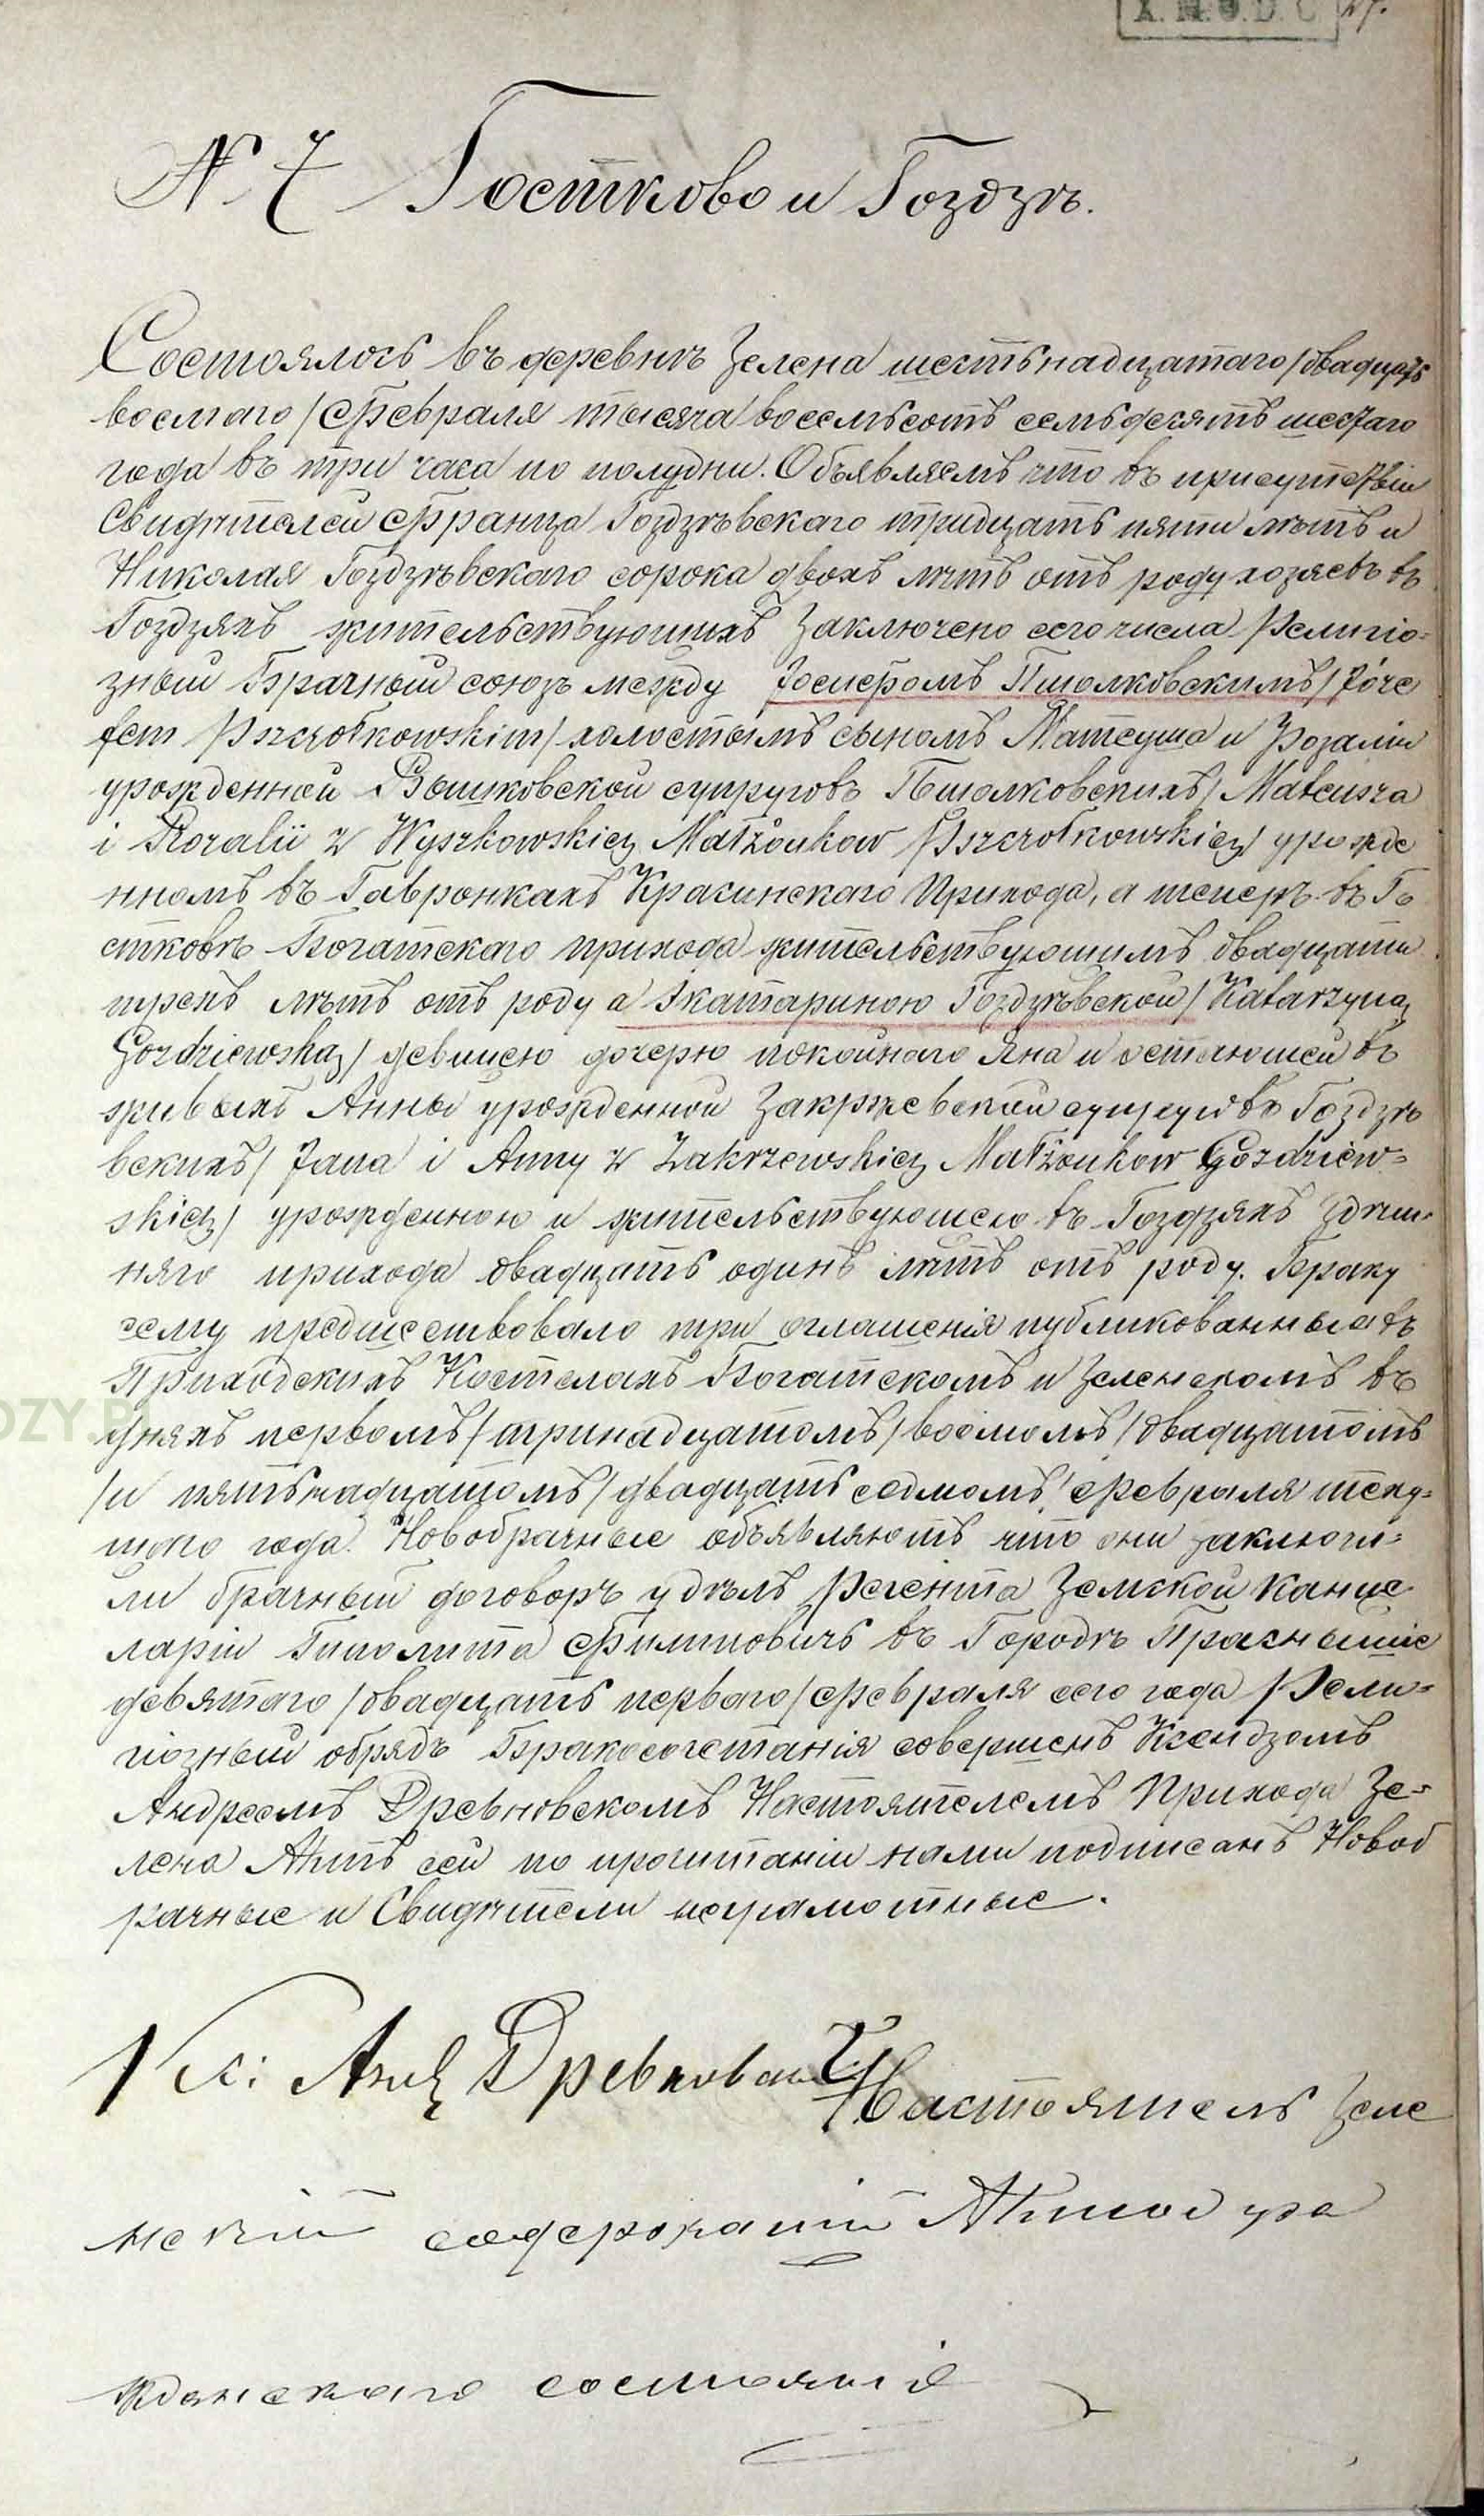 27.
N. 7 Гостково и Гоздзѣ.
Состоялось въ деревнѣ Зелена шестьнадцатаго /двадцать
восмаго/ Февраля тысяча восемьсотъ семьдесятъ шестаго
года въ три часа по полудни. Объявляемъ что въ присутствіи
Свидѣтелей Франца Гоздзѣвскаго тридцать пяти лѣтъ и
Николая Гоздзѣвскаго сорока двохъ лѣтъ отъ роду хозяевъ въ
Гоздзяхъ жительствующихъ Заключено сего числа Религіо-
зный Брачный союзъ между Іосифомъ Пшолковскимъ /Józe
fem Pszczołkowskim/ холостымъ сыномъ Матеуша и Розаліи
урожденной Вышковской супруговъ Пшолковскихъ /Mateusza
i Rozalii z Wyszkowskich Małżonkow Pszczołkowskich/ урожде
нномъ въ Гавронкахъ Красинскаго Прихода, а теперь въ Го
стковѣ Богатскаго прихода жительствующимъ двадцати
трехъ лѣтъ отъ роду а Екатариною Гоздзѣвской /Katarzyną
Gozdziewską/ девицею дочерю покойнаго Яна и остающей въ
живыхъ Анны урожденной Закржевской супруговъ Гоздзѣ
вскихъ /Jana i Anny z Zakrzewskich Małżonkow Gozdziew-
skich/ урожденною и жительствующею въ Гоздзяхъ здѣш-
няго прихода двадцать одинъ лѣтъ отъ роду. Браку
сему предшествовало три оглашенія публикованныя въ
Приходскихъ Костелахъ Богатскомъ и Зеленскомъ въ
дняхъ первомъ /тринадцатомъ/ восмомъ /двадцатомъ
/и пятьнадцатомъ /двадцать седмомъ/ Февраля теку-
щаго года. Новобрачные объявляютъ что они заключи-
ли брачный договоръ удѣлъ Регента Земской Канце
ларіи Гиполита Филиповичъ въ Городѣ Праснышѣ
девятаго /двадцать перваго/ Февраля сего года Рели-
гіозный обрядъ Бракосочетанія совершенъ Ксендзомъ
Андреемъ Древновскомъ Настоятелемъ Прихода Зе-
лена Актъ сей по прочитаніи нами подписанъ Новоб
рачные и Свидѣтели неграмотные.
Кс: Анд Древновскій Настоятель Зеле
нскій содержащій Акты гра
жданскаго состоянія